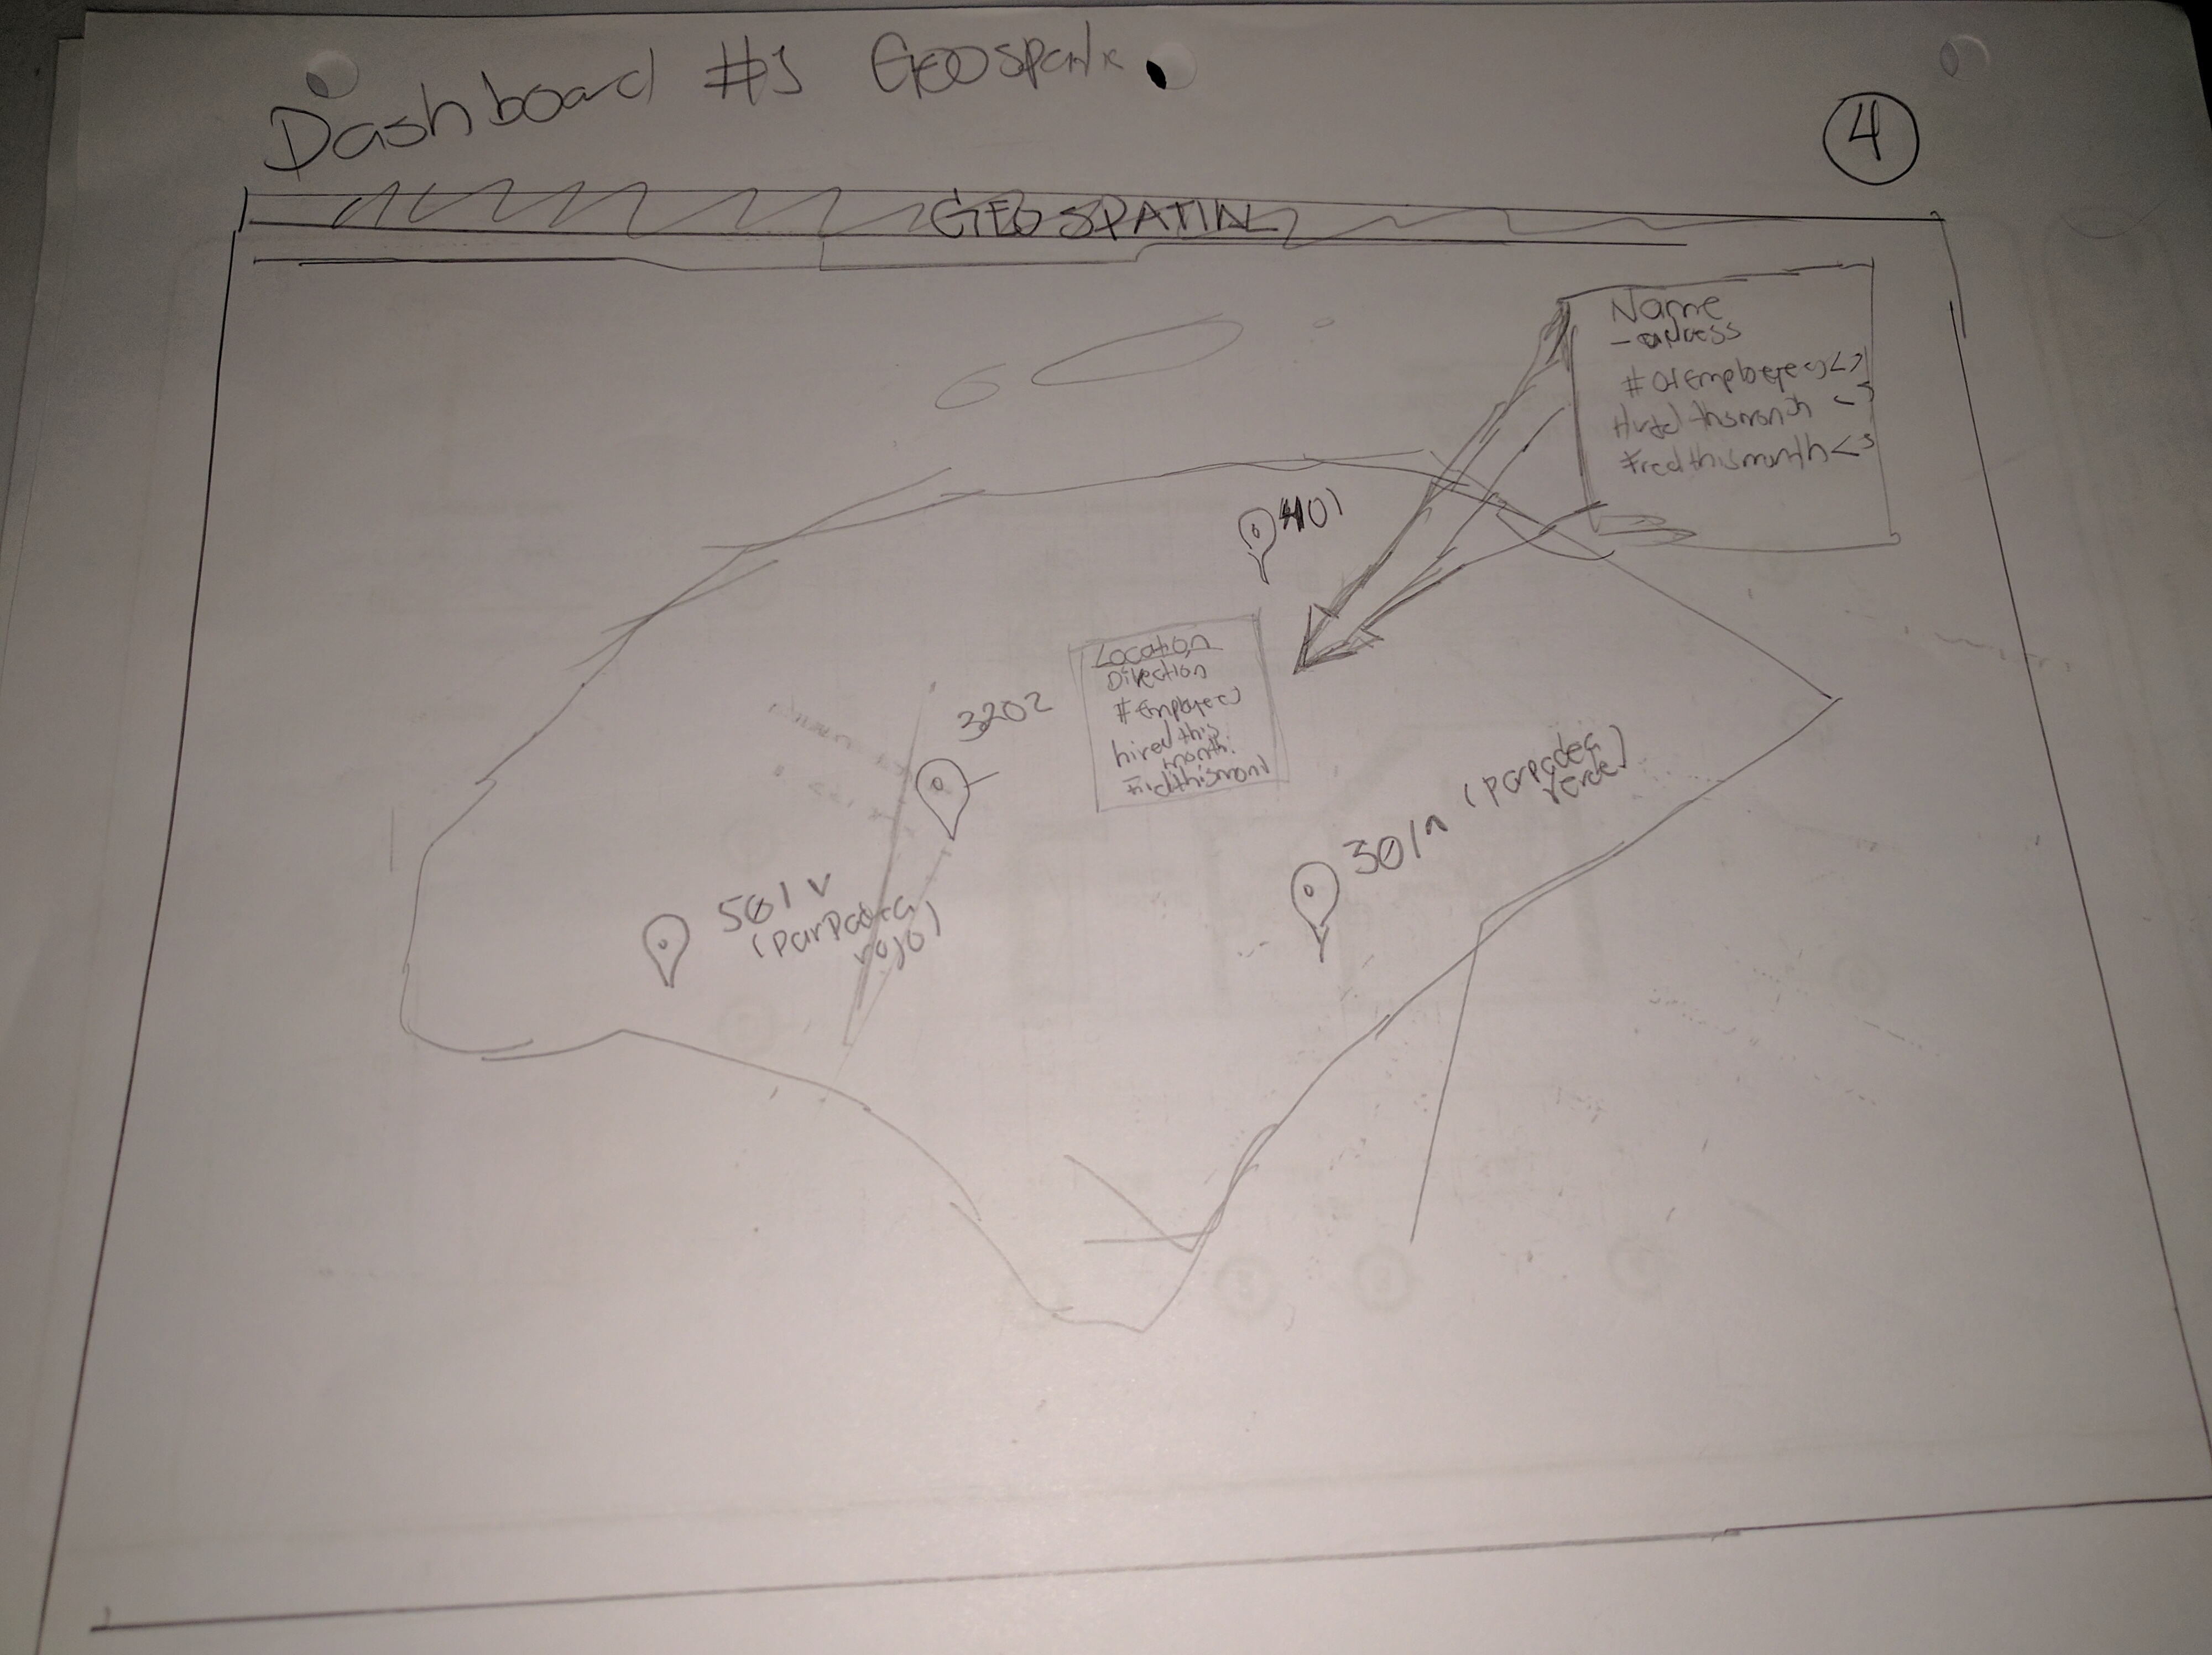 Dashboard #1
4
GEOSPATIAL
Name
- address
# of Employees < >
Hired this month < >
Fired this month < >
401
Location
Direction
# Employees
hired this
month:
Fired this mont
3202
301 ^ (parpadea
verde)
501 v
(parpadea
rojo)